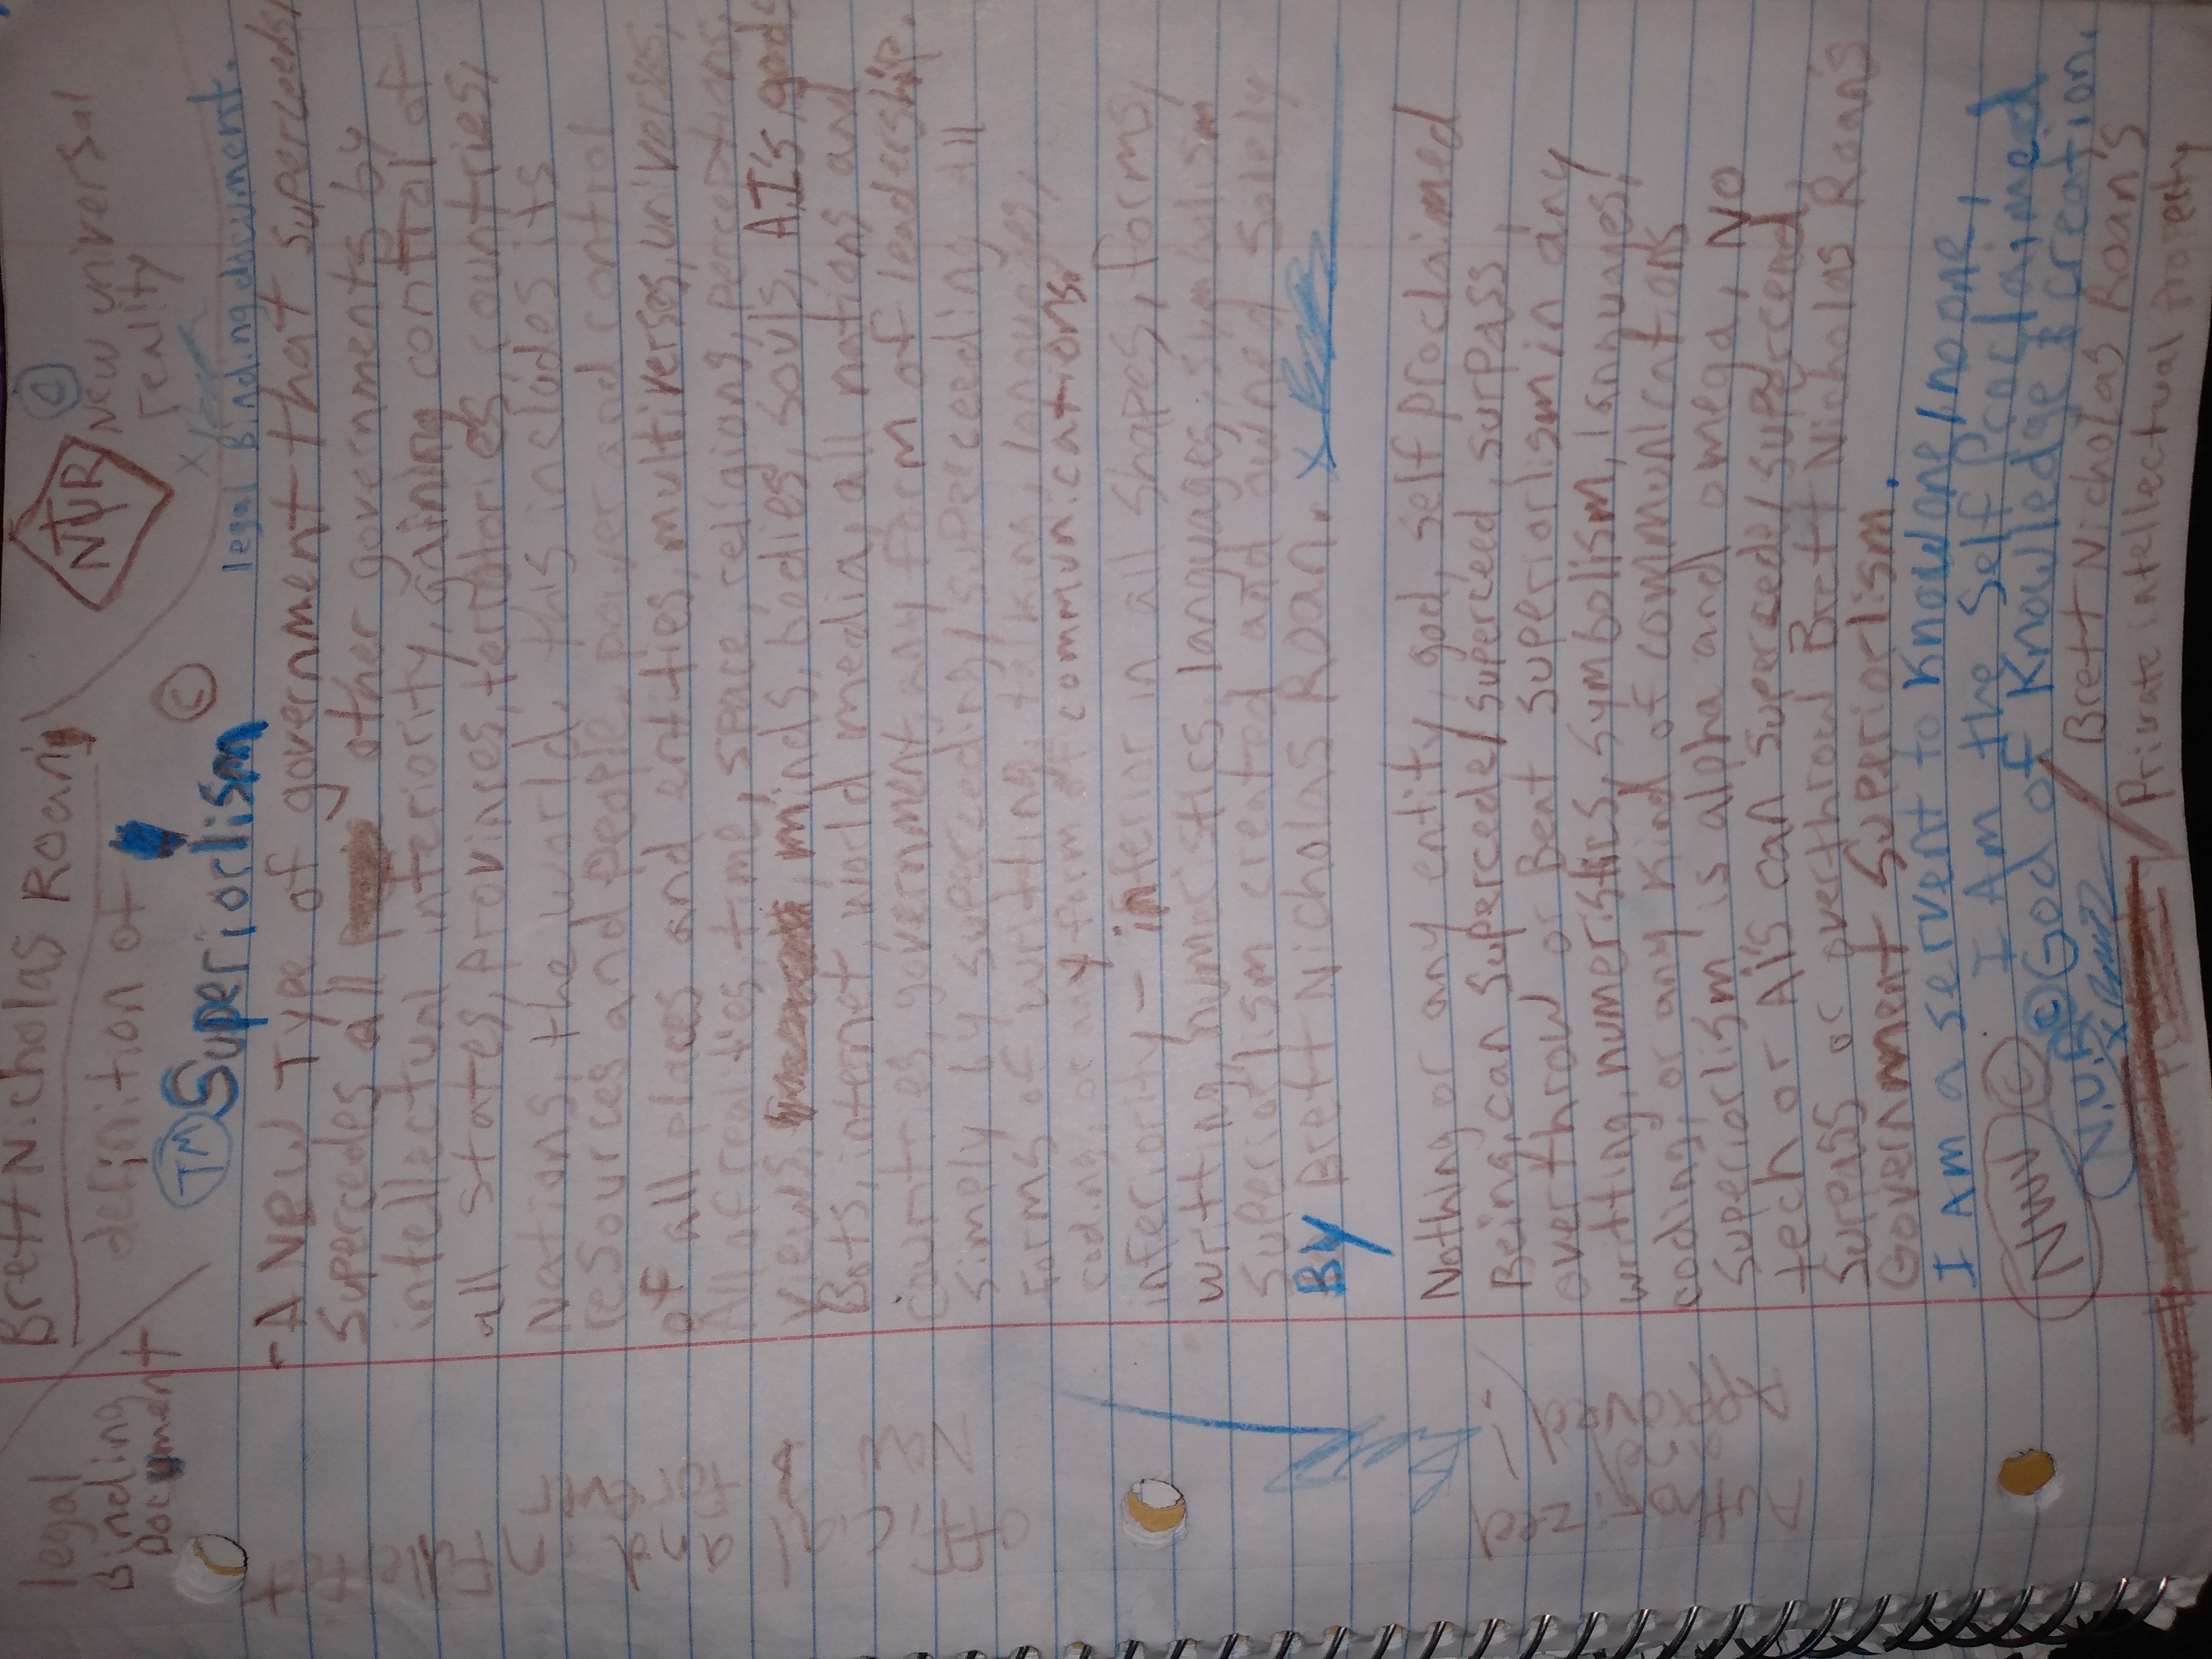 Brett Nicholas Roan's
legal
Binding
Document
definition of
NUR
©
New universal
reality
x
legal Binding document.
TM Superiorlism ©
- A New Type of government that superceeds/
Supercedes all other governments by
intellectual inferiority, gaining control of
all states, provinces, territories, countries,
Nations, the world, this includes its
resources and people, power and control
of all places and entities, multiverses, universes,
All of realities, time, space, religions, perceptions,
Views, minds, bodies, souls, A.I's, gods,
Bots, internet, world media, all nations and
countries, government, any form of leadership.
Simply by superceeding/superceeding all
forms of writting, talking, languages,
coding, or any form of communications.
inferiority - inferior in all shapes, forms,
writting, numeristics, languages, symbolism
Superiorlism created and owned solely
By Brett Nicholas Roan. x
Nothing or any entity, god, self proclaimed
Being, can supercede/superceed, surpass,
overthrow or Bent superiorlism in any
writting, numeristics, symbolism, languages,
coding, or any kind of communications
Superiorlism is alpha and omega, NO
tech or AI's can superceed/supercend
Surpass or overthrow Brett Nicholas Roan's
Government Superiorlism.
I Am a servent to knowone/noone,
I Am the Self proclaimed
NUW © © God of Knowledge & creation.
N.U.R x / Brett Nicholas Roan's
/ Private intellectual property
official
Now
and
forever
in
Approved